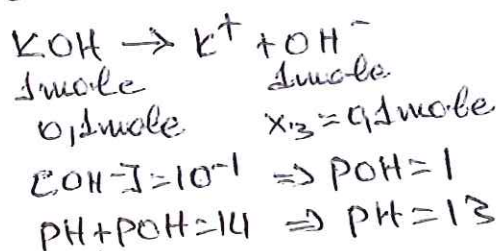 KOH → K⁺ + OH⁻
1mole 1mole
0,1mole x₁₃ = 0,1mole
[OH⁻] = 10⁻¹ ⇒ POH = 1
PH + POH = 14 ⇒ PH = 13